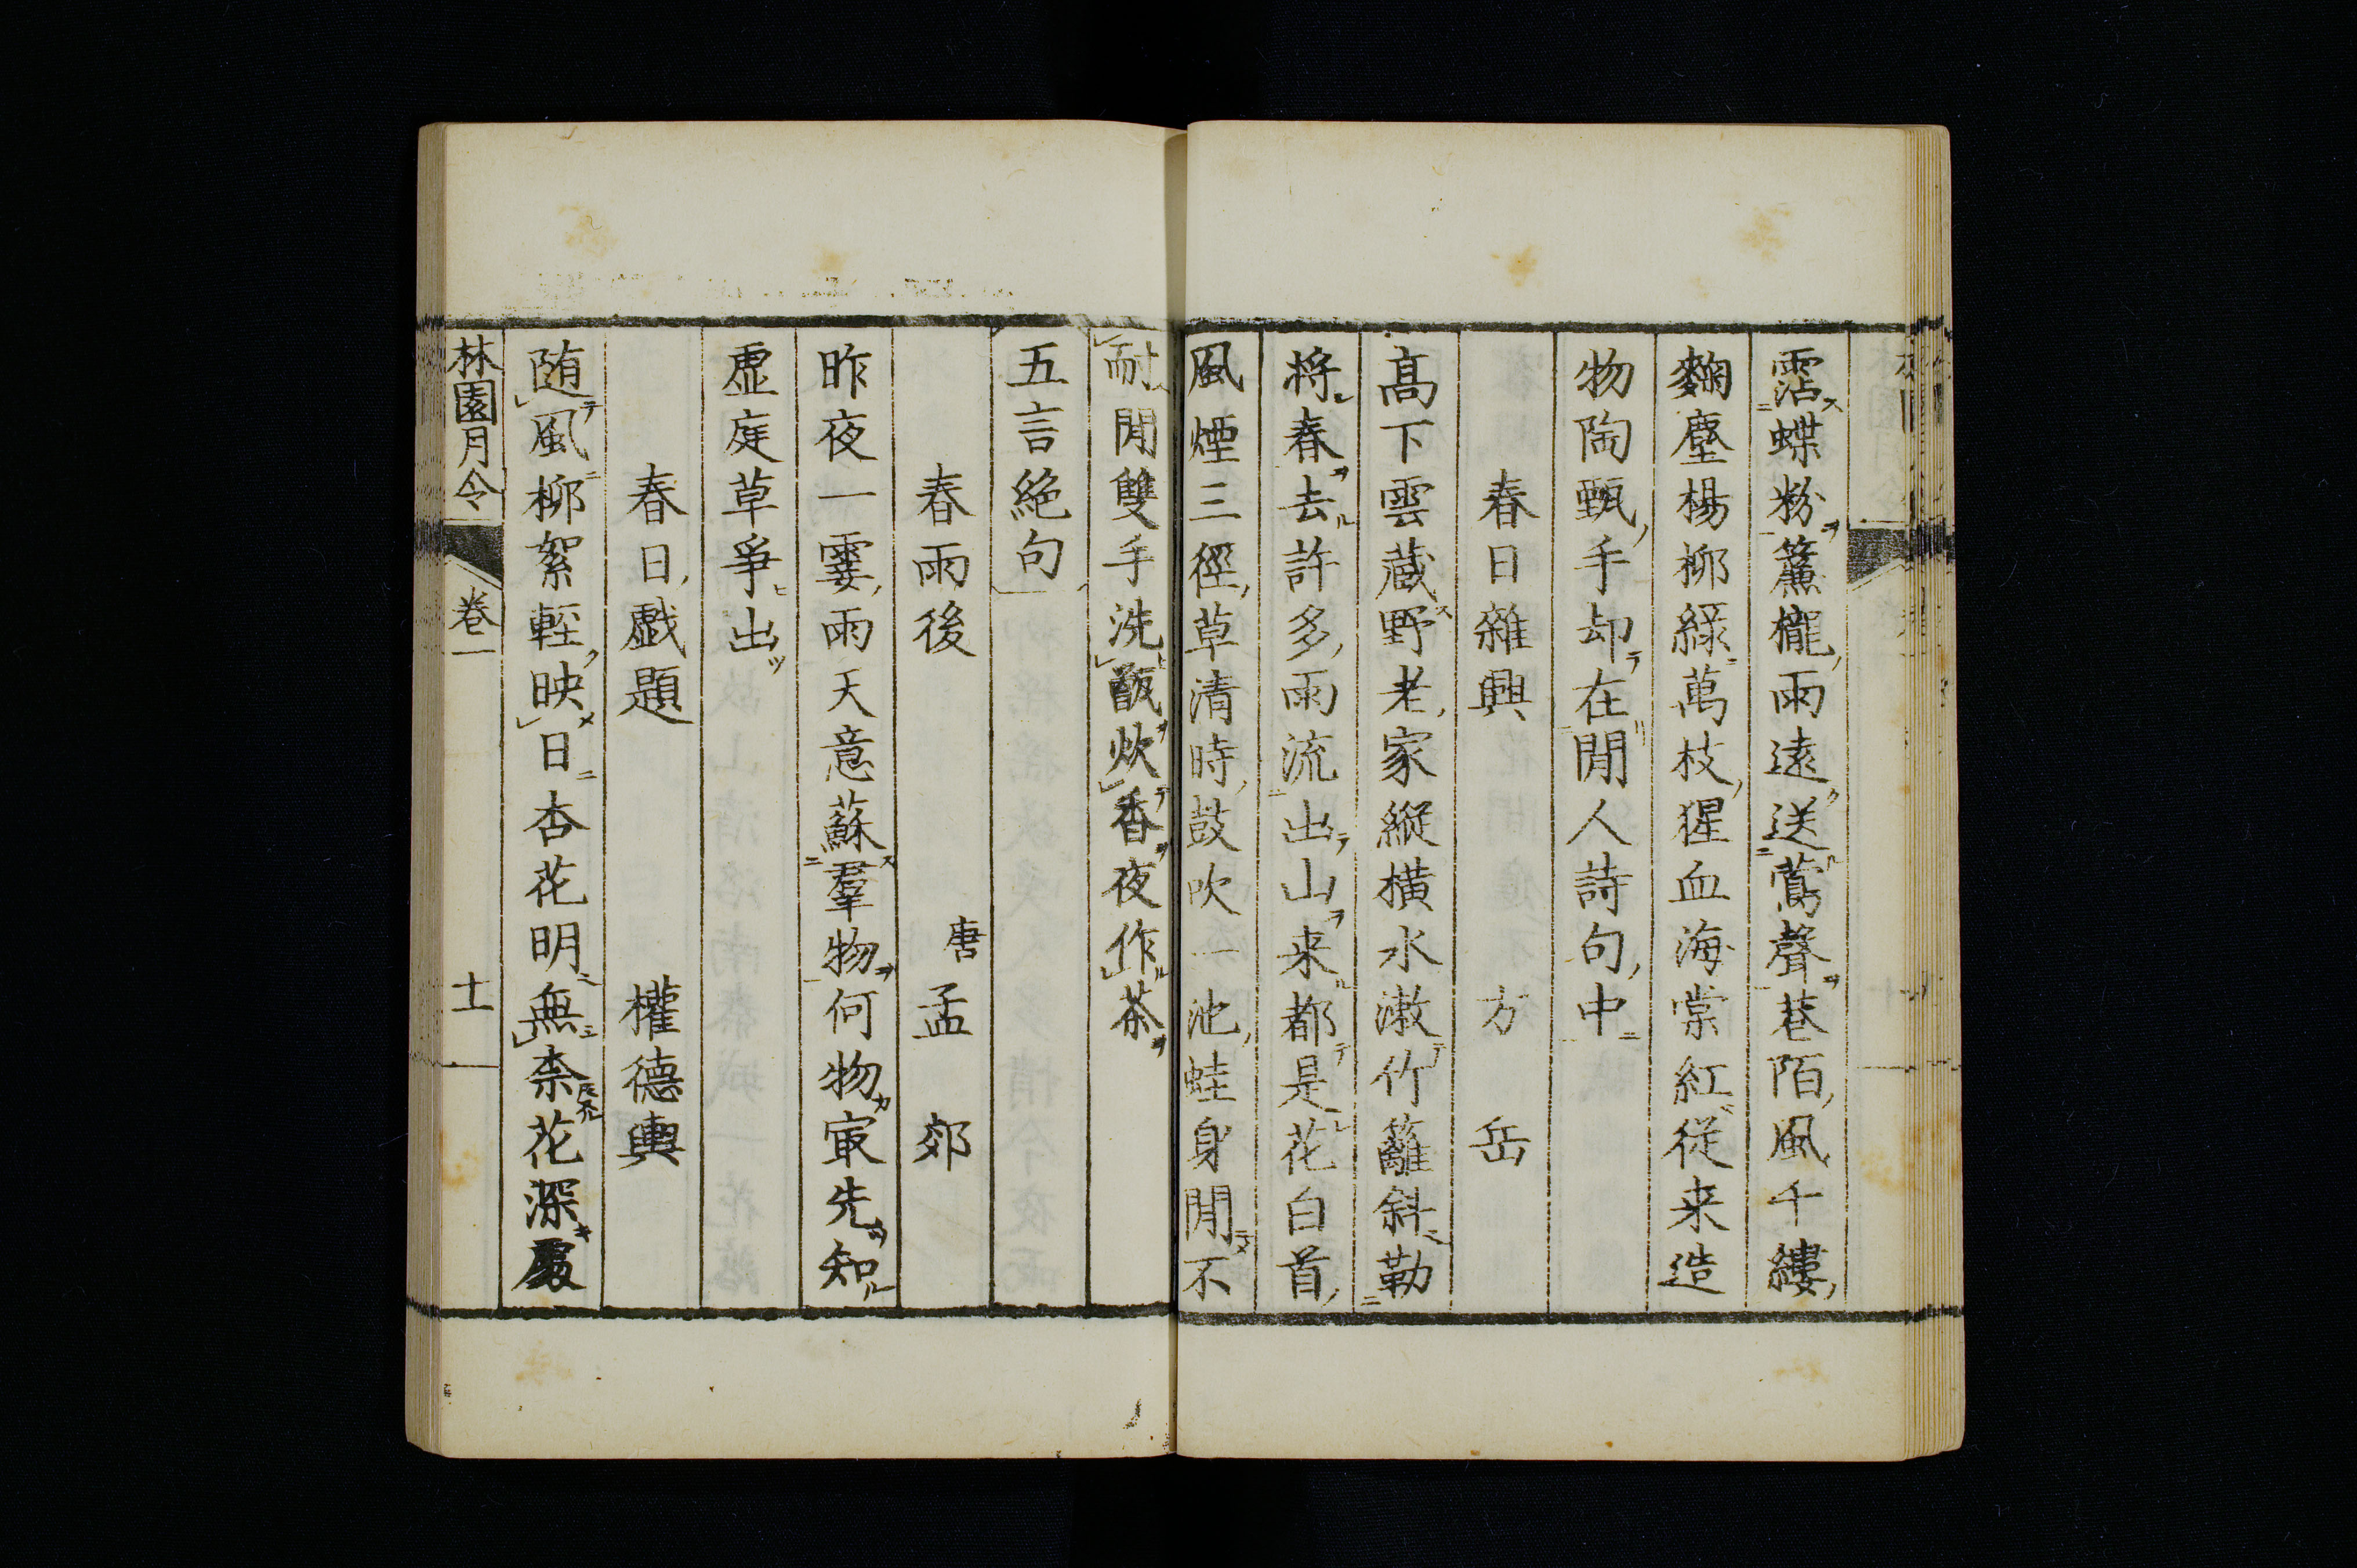 霑蝶粉簾櫳雨遠送鶯聲巷陌風千縷
麴塵楊柳緑萬枝猩血海棠紅従来造
物陶甄手却在閒人詩句中
春日雜興 方岳
髙下雲蔵野老家縱横水漱竹籬斜勒
将春去許多雨流出山来都是花白首
風煙三徑草清時鼓吹一池蛙身閒不
耐閒雙手洗甑炊香夜作茶
五言絶句
春雨後 唐 孟郊
昨夜一霎雨天意蘇羣物何物㝡先知
虚庭草爭出
春日戯題 權德輿
随風柳絮輕映日杏花明無柰花深處
林園月令 卷一 十一